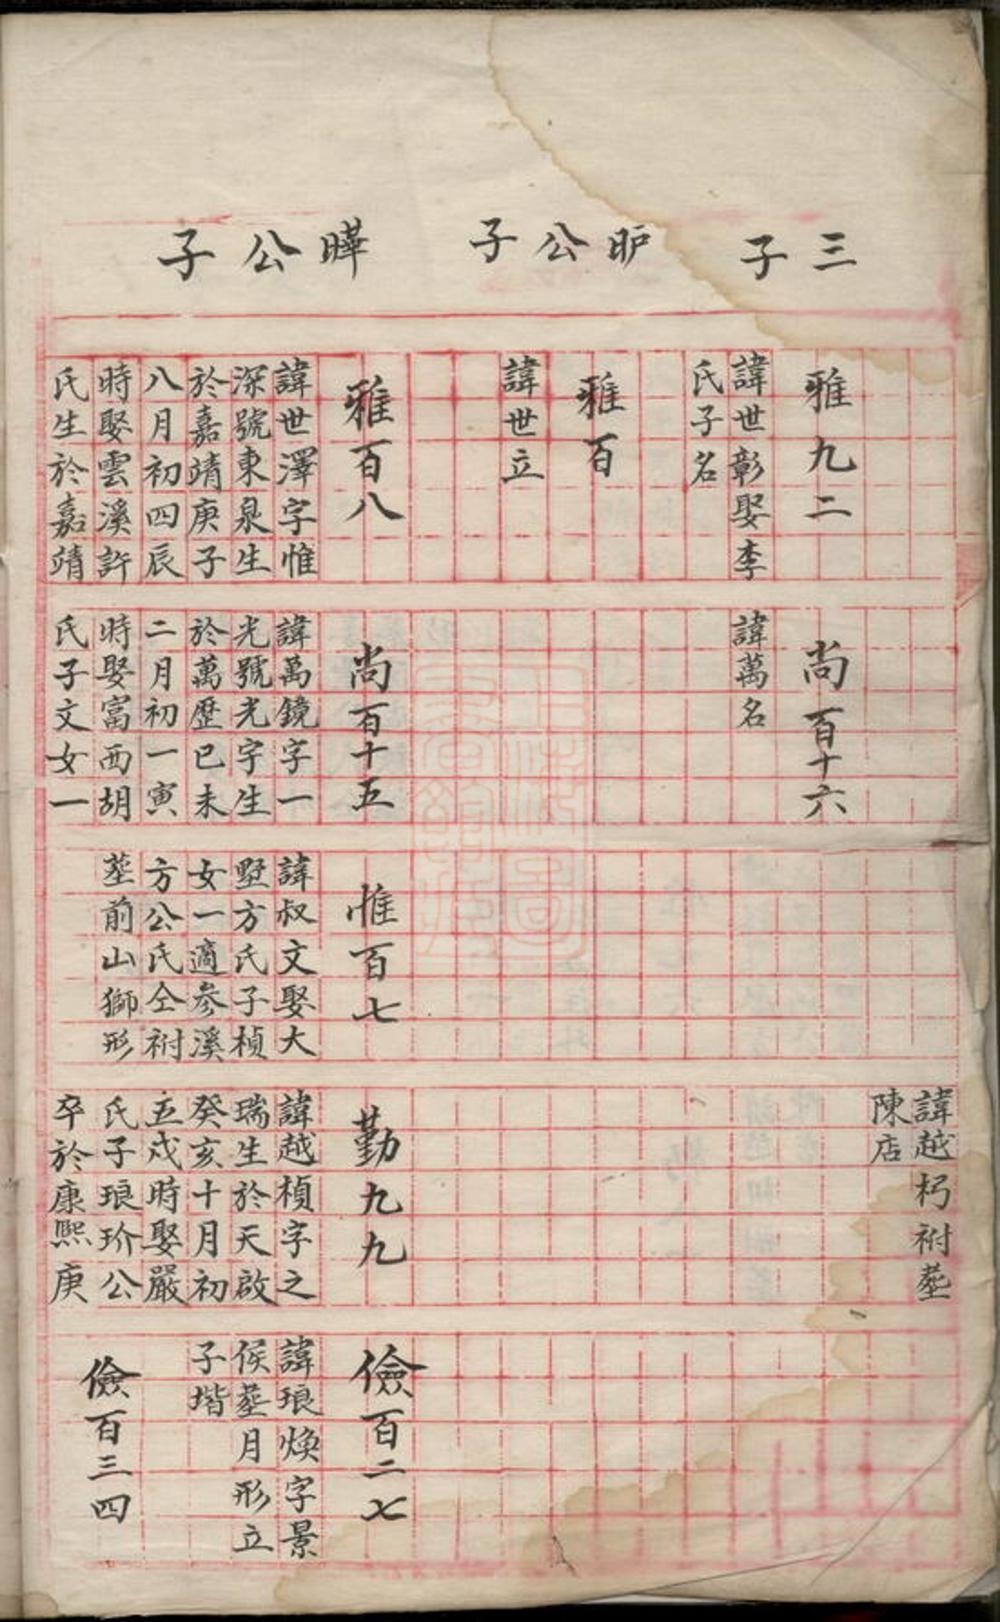 三子
昈公子
曄公子
雅九二
諱世彰娶李
氏子名
雅百
諱世立
雅百八
諱世澤字惟
深號東泉生
於嘉靖庚子
八月初四辰
時娶雲溪許
氏生於嘉靖
尚百十六
諱萬名
尚百十五
諱萬鏡字一
光號光宇生
於萬歷已未
二月初一寅
時娶富西胡
氏子文女一
惟百七
諱叔文娶大
墅方氏子楨
女一適參溪
方公氏仝祔
塟前山獅形
諱越杇祔塟
陳店
勤九九
諱越楨字之
瑞生於天啟
癸亥十月初
五戌時娶嚴
氏子琅玠公
卒於康熙庚
儉百二七
諱琅煥字景
侯塟月形立
子堦
儉百三四